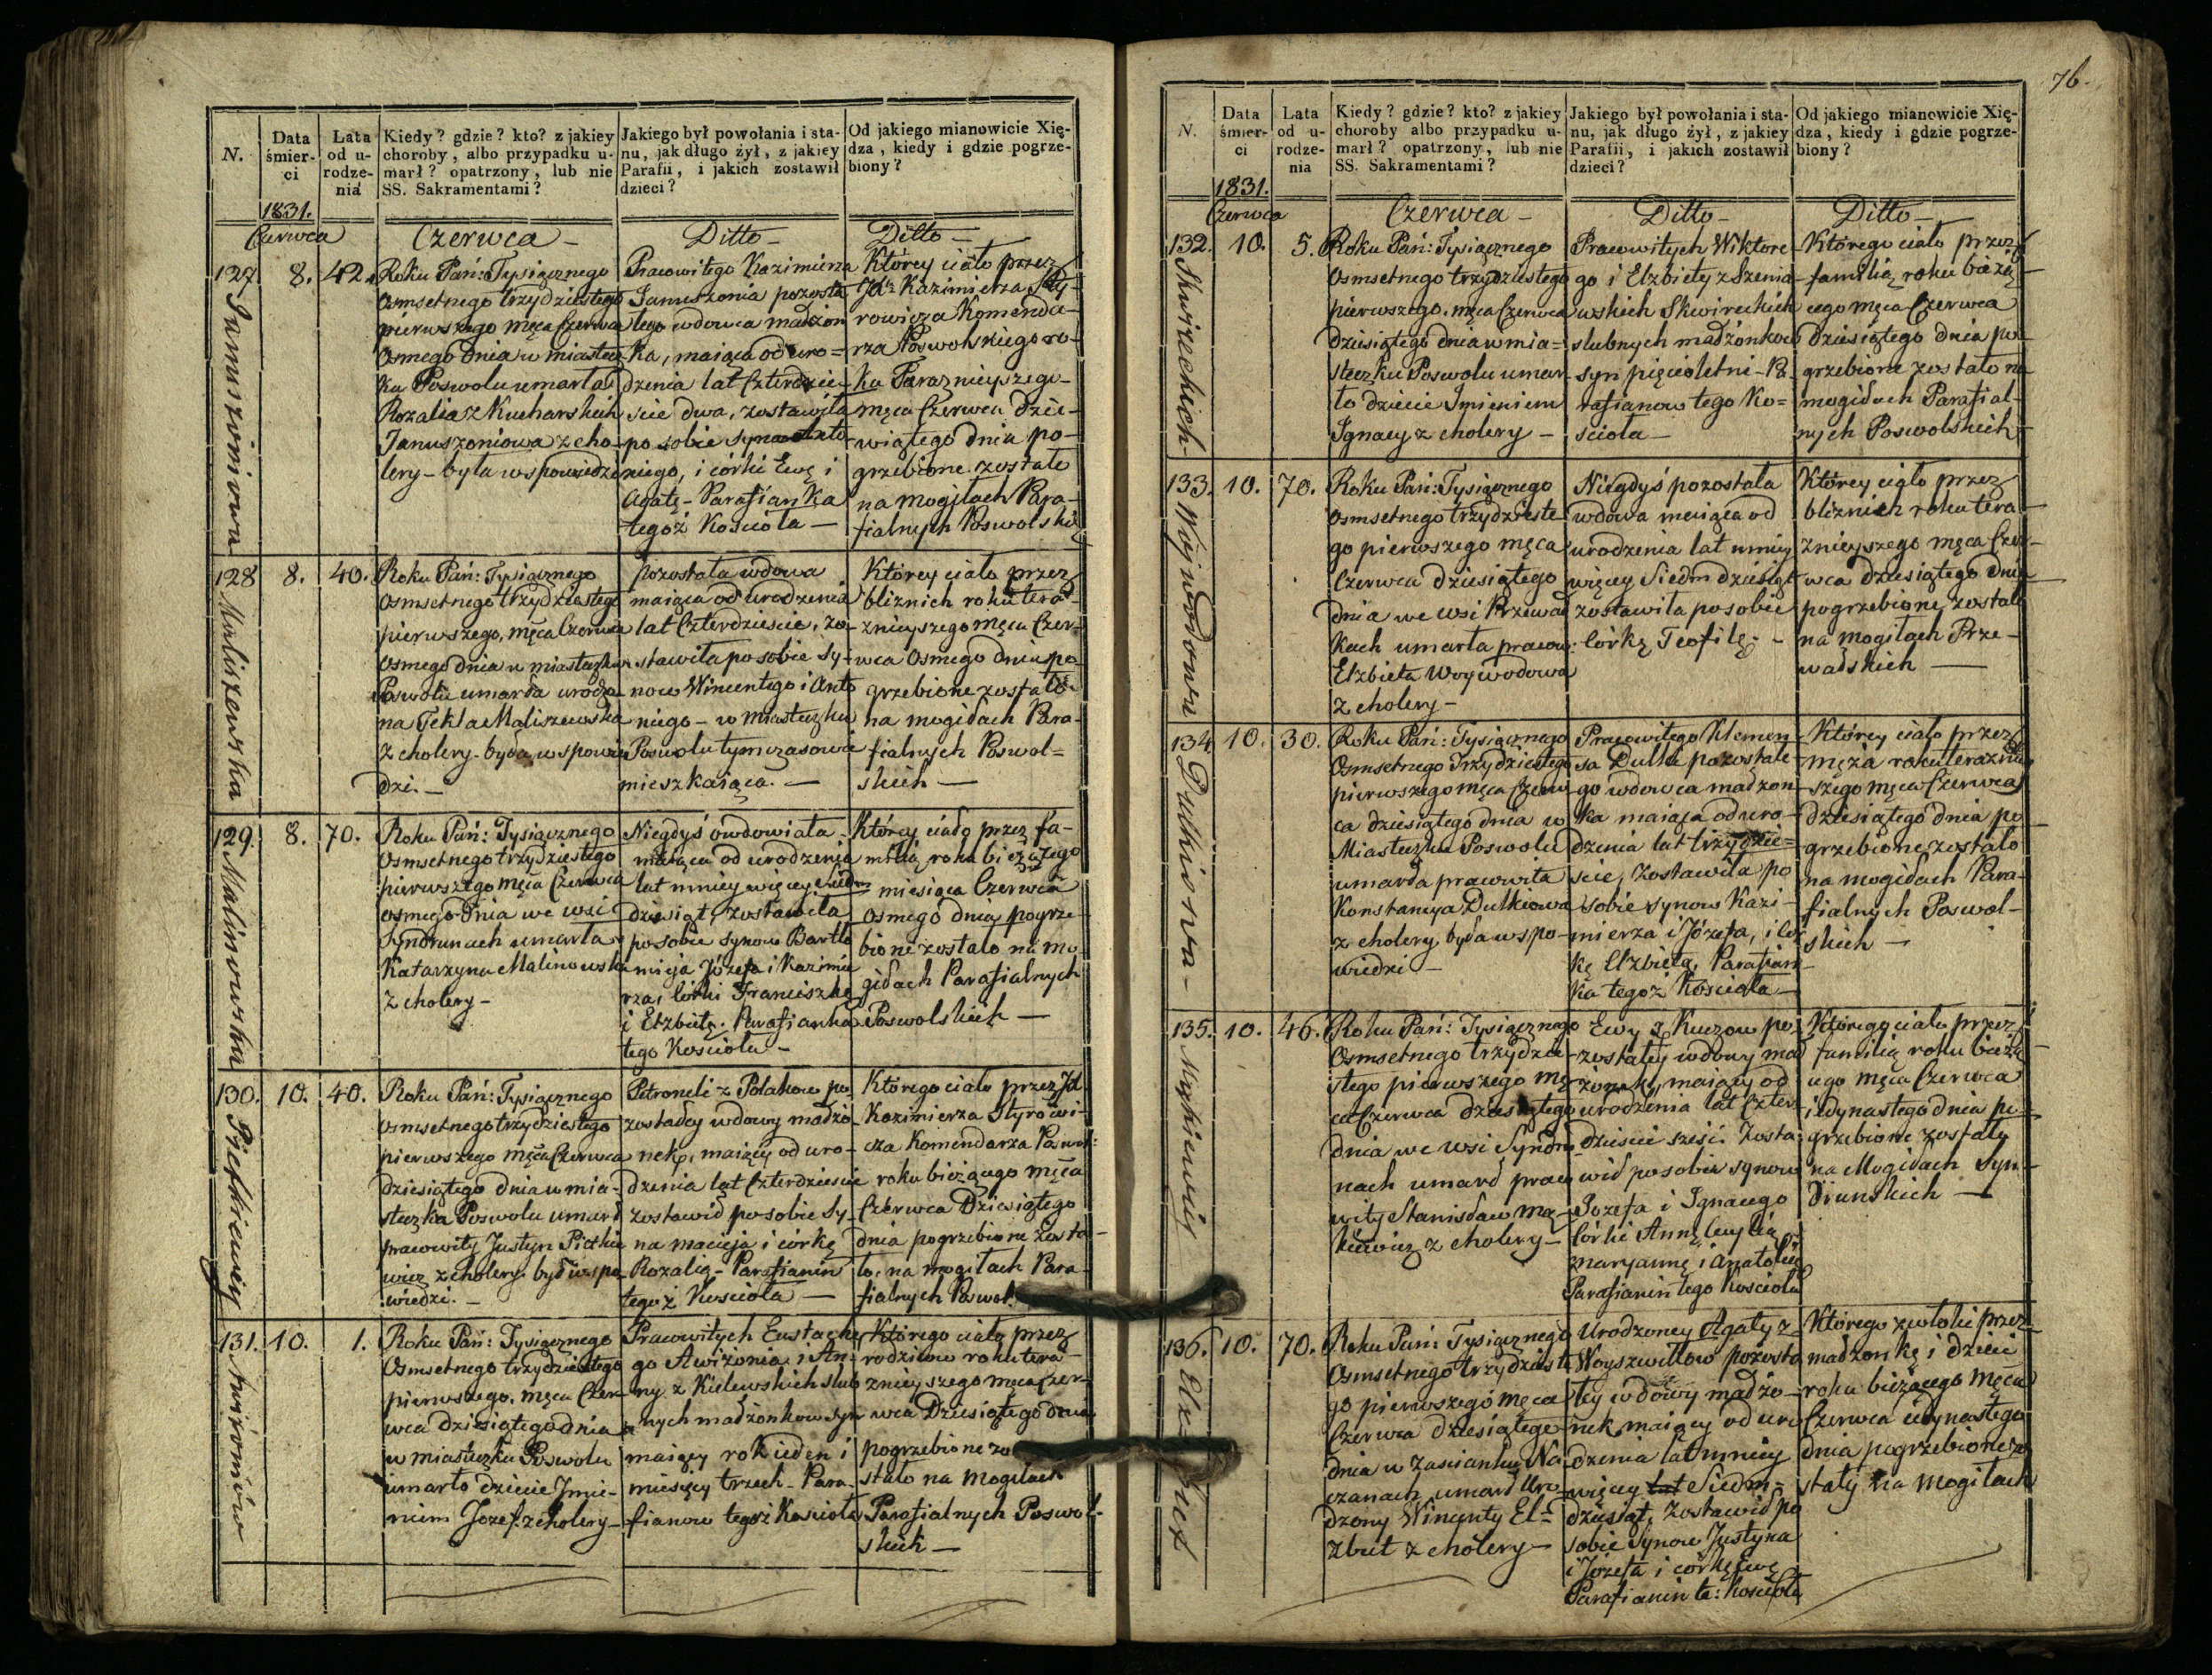 N.
Data śmierci
Lata od urodzenia
Kiedy? gdzie? kto? z jakiey
choroby, albo przypadku u-
marł? opatrzony, lub nie
SS. Sakramentami?
Jakiego był powołania i sta-
nu, jak długo żył, z jakiey
Parafii, i jakich zostawił
dzieci?
Od jakiego mianowicie Xię-
dza, kiedy i gdzie pogrze-
biony?
1831.
Czerwca
Czerwca –
Ditto –
Ditto –
127
Januszoniowa
8.
42.
Roku Pań: Tysiącznego
Osmsetnego trzydziestego
pierwszego męca Czerwca
Osmego dnia w miastecz
ku Poswolu umarła
Rozalia z Kucharskich
Januszoniowa z cho-
lery – była w spowiedzi
Pracowitego Kazimierza
Januszonia pozosta
łego wdowca małżon
ka, maiąca od uro=
dzenia lat Czterdzie-
ście dwa, zostawiła
po sobie syna Anto
niego, i córki Ewę i
Agatę – Parafianka
tegoż Kościoła –
Którey ciało przez
Jd. Kazimierza Sty-
rowicza Komenda-
rza Poswolskiego ro-
ku teraznieyszego
męca Czerwca dzie-
wiątego dnia po-
grzebione zostało
na mogiłach Para-
fialnych Poswolskich
128
Maliszewska
8.
40.
Roku Pań: Tysiącznego
Osmsetnego trzydziestego
pierwszego, męca Czerwca
Osmego dnia w miasteczku
Poswolu umarła urodzo
na Tekla Maliszewska
z cholery – była w spowie
dzi. –
pozostała wdowa
maiąca od urodzenia
lat Czterdzieście, zo-
stawiła po sobie Sy-
now Wincentego i Anto
niego – w Miasteczku
Poswolu tymczasowie
mieszkaiąca. –
Którey ciało przez
bliznich roku tera-
znieyszego męca Czer-
wca Osmego dnia po-
grzebione zostało
na mogiłach Para-
fialnych Poswol=
skich –
129.
Malinowska
8.
70.
Roku Pań: Tysiącznego
Osmsetnego trzydziestego
pierwszego męca Czerwca
osmego dnia we wsi
Syndrunach umarła
Katarzyna Malinowska
z cholery –
Niegdyś owdowiała
maiąca od urodzenia
lat mniey więcey siedm
dziesiąt, zostawiła
po sobie synow Bartło
mieja Józefa i Kazimie
rza, córki Franciszkę
i Elzbietę. Parafianka
tego Kościoła –
Którey ciało przez fa-
milią roku bieżącego
miesiąca Czerwca
Osmego dnia pogrze-
bione zostało na mo-
giłach Parafialnych
Poswolskich –
130.
Pietkiewicz
10.
40.
Roku Pań: Tysiącznego
osmsetnego trzydziestego
pierwszego męca Czerwca
dziesiątego dnia w mia-
steczku Poswolu umarł
pracowity Justyn Pietkie
wicz z cholery. był w spo
wiedzi. –
Petroneli z Polakow po-
zostałey wdowy małżo
nek, maiący od uro-
dzenia lat Czterdzieście
zostawił po sobie Sy-
na Macieja i corkę
Rozalią – Parafianin
tegoż Kościoła –
Którego ciało przez Jd
Kazimierza Styrowi-
cza Komendarza Poswol:
roku bieżącego męca
Czerwca Dziesiątego
dnia pogrzebione zosta-
ło, na mogiłach Para
fialnych Poswol.
131.
Awiżoniow
10.
1.
Roku Pań: Tysiącznego
Osmsetnego trzydziestego
pierwszego, męca Czer-
wca dziesiątego dnia
w miasteczku Poswolu
umarło dziecie Imie-
niem Jozef. z cholery –
Pracowitych Eustache
go Awiżonia, i An-
ny z Kielewskich slub
nych małżonkow syn
maiący rok ieden i
miesięcy trzech – Para-
fianow tegoż Kościoła
Którego ciało przez
rodzicow roku tera-
znieyszego męca Czer-
wca Dziesiątego dnia
pogrzebione zo
stało na mogiłach
Parafialnych Poswol-
skich –
76.
N.
Data śmierci
Lata od urodzenia
Kiedy? gdzie? kto? z jakiey
choroby albo przypadku u-
marł? opatrzony, lub nie
SS. Sakramentami?
Jakiego był powołania i sta-
nu, jak długo żył, z jakiey
Parafii, i jakich zostawił
dzieci?
Od jakiego mianowicie Xię-
dza, kiedy i gdzie pogrze-
biony?
1831.
Czerwca
Czerwca –
Ditto –
Ditto –
132.
Skwireckich
10.
5.
Roku Pań: Tysiącznego
Osmsetnego trzydziestego
pierwszego, męca Czerwca
dziesiątego dnia w mia=
steczku Poswolu umar
ło dziecie Imieniem
Ignacy z cholery –
Pracowitych Wiktore
go i Elzbiety z Szemia
wskich Skwireckich
slubnych małżonkow
syn pięcioletni – Pa
rafianow tego Ko=
ścioła –
Którego ciało przez
familią roku bieżą
cego męca Czerwca
dziesiątego dnia po-
grzebione zostało na
mogiłach Parafial-
nych Poswolskich
133.
10.
70.
Roku Pań: Tysiącznego
Osmsetnego trzydzieste
go pierwszego męca
Czerwca dziesiątego
dnia we wsi Przewad
kach umarła pracow:
Elzbieta Woywodowa
z cholery –
Niegdyś pozostała
wdowa maiąca od
urodzenia lat mniey
więcey Siedmdziesiąt
zostawiła po sobie
Córkę Teofilę. –
Którey ciało przez
bliznich roku tera
znieyszego męca Czer-
wca dziesiątego dnia
pogrzebione zostało
na mogiłach Prze-
wadskich –
134
Dulkiowa –
10.
30.
Roku Pań: Tysiącznego
Osmsetnego Trzydziestego
pierwszego męca Czerw-
ca dziesiątego dnia w
Miasteczku Poswolu
umarła pracowita
Konstancya Dulkiowa
z cholery była w spo-
wiedzi –
Pracowitego Klemen
sa Dulki pozostałe
go wdowca małżon
ka maiąca od uro-
dzenia lat trzydzie=
ście, zostawiła po
sobie synow Kazi-
mierza i Józefa, i cor
kę Elzbietą, Parafian
ka tegoż Kościoła –
Którey ciało przez
męża roku teraźniey
szego męca Czerwca
dziesiątego dnia po
grzebione zostało
na mogiłach Para-
fialnych Poswol-
skich –
135.
10.
46.
Roku Pań: Tysiącznego
Osmsetnego trzydzie-
stego pierwszego mę-
ca Czerwca dziesiątego
dnia we wsi Syndru
nach umarł praco
wity Stanisław
z cholery –
Ewy z Kuczow po-
zostałey wdowy mał
żonek, maiący od
urodzenia lat Czter-
dzieście sześć. Zosta
wił po sobie synow
Jozefa i Ignacego
Córki Annę Cecylią
Maryannę i Anatolią
Parafianin tego Kościoła
Którego ciało przez
familią roku bieżą
cego męca Czerwca
iedynastego dnia po-
grzebione zostały
na Mogiłach Syn-
drunskich –
136.
10.
70.
Roku Pań: Tysiącznego
Osmsetnego trzydzieste
go pierwszego męca
Czerwca dziesiątego
dnia w Zascianku No
czanach umarł Uro
dzony Wincenty El=
zbut z cholery –
Urodzoney Agaty z
Woyszwiłłow pozosta
łey wdowy małżo-
nek maiący od uro
dzenia lat mniey
więcey Siedm=
dziesiąt, zostawił po
sobie Synow Justyna
i Jozefa i córkę Ewę
Parafianin te: Kościoła
Którego zwłoki przez
małżonkę i dzieci
roku bieżącego męca
Czerwca iedynastego
dnia pogrzebione zo
stały na mogiłach